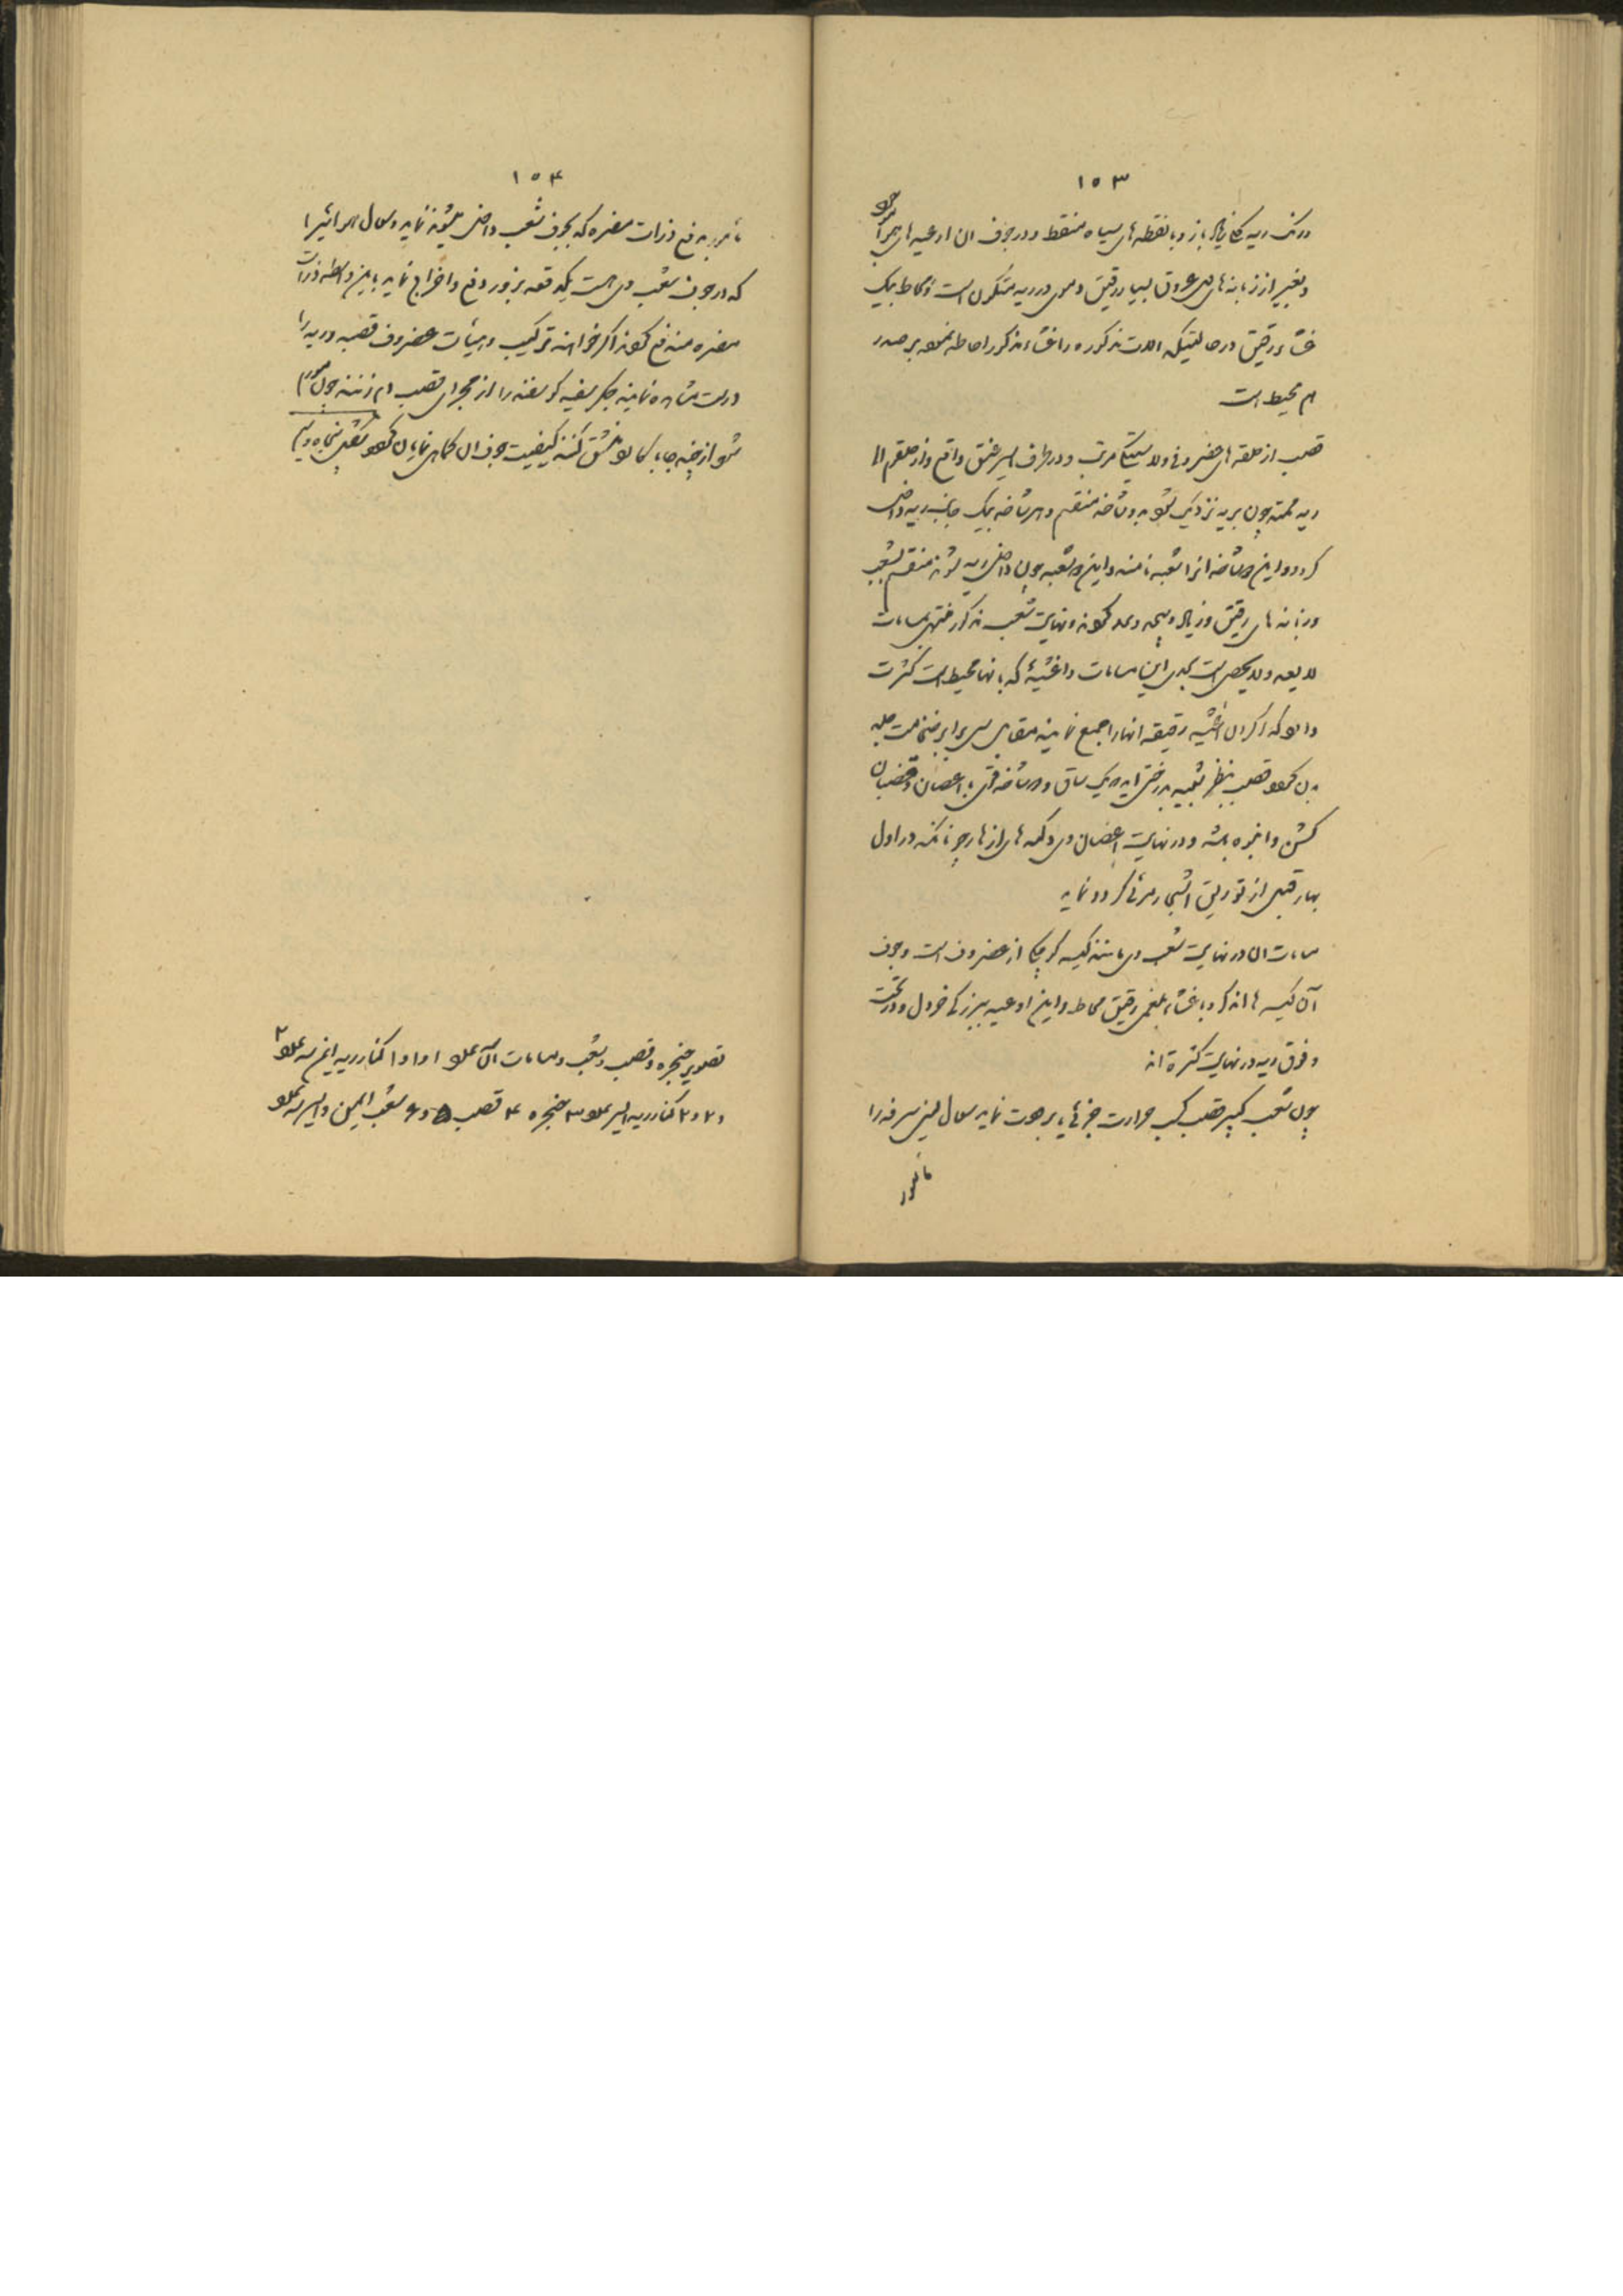 ۱۵۳
و رنگ ریه خاکی باز و با نقطه های سیاه منقط و در جوف ان اوعیه های
و بغیر از زبانه های عروق بسیار رقیق دموی در ریه متکون است و محاط بیک
غشاء رقیق در حالتیکه الات مذکوره را غشاء مذکور احاطه نموده بر صدر
هم محیط است
قصب از حلقه های غضروفی ولاستیکی مرتب و در طرف ایسر عنق واقع و از حلقوم الی
ریه ممتد چون بریه نزدیک شود بدو شاخه منقسم و هر شاخه بیک جانب ریه داخل
کردد و این دو شاخه انرا شعبه نامند و این دو شعبه چون داخل ریه شوند منقسم بشعب
و زبانه های رقیق و زیاد و پیچیده کردند و نهایت شعب مذکور منتهی بمسامات
لایعد ولایحصی است این مسامات و اغشیهٔ که بانها محیط است کثرت
دارد که اکر ان اغشیه رقیقه انها را جمع نمایند مقابل برابر ضخامت جلد
بدن کردد قصب بنظر شبیه بدرختی اید که یک ساق و دو شاخه با اغصان و قضبان
کشن و انبوه باشد و در نهایت اغصان وی دکمه های ازهار چنانکه در اول
بهار قبل از توریق اشجار مرئی کردد نماید
مسامات ان در نهایت شعب وی مانند کیسه کوچک از غضروف است و جوف
آن کیسه ها اندکی و با غشاء بلغمی رقیق محاط و این اوعیه ببزرکی خردل و در تحت
و فوق ریه در نهایت کثرة اند
چون شعب کبیر قصب کسب حرارت جزئی یا برودت نماید سعال یعنی سرفه را
مامور
۱۵۴
مامور بدفع ذرات مضره که بجوف شعب داخل میشوند نماید و سعال هوائیرا
که در جوف شعب وی است یکدفعه بزور دفع و اخراج نماید باین واسطه ذرات
مضره مندفع کردند اکر خواهند ترکیب و هیئات غضروف قصبه و ریه را
درست مشاهده نمایند جکر سفید کوسفند را از مجرای قصب دم زنند چون
شود از چند جا با کارد منشق کنند کیفیت جوف ان کماهی نمایان کردد
تصویر حنجره و قصب و شعب و مسامات آن علو ۱ و ۱ و ۱ کنار ریه ایمن علو ۲
و ۲ و ۲ کنار ریه ایسر علو ۳ حنجره ۴ قصب ۵ و ۶ شعب ایمن و ایسر